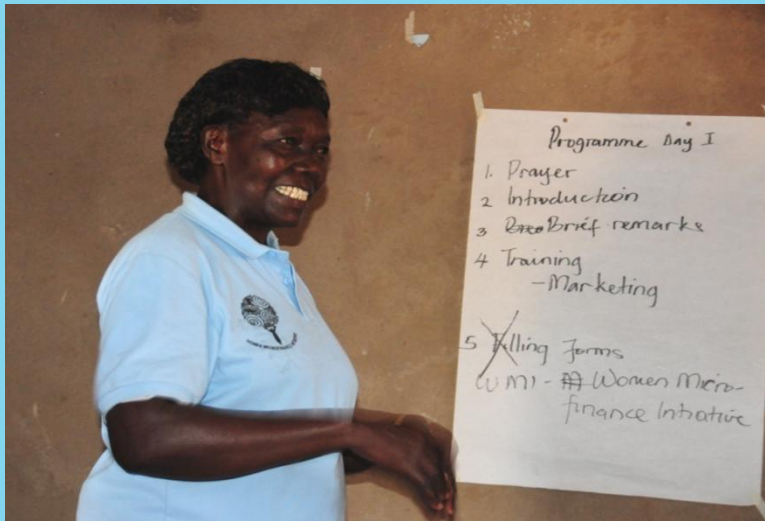 Programme Day I
1. Prayer
2 Introduction
3 Brief remarks
4 Training
- Marketing
5 Filling Forms
WMI - Women Micro-
finance Intiative